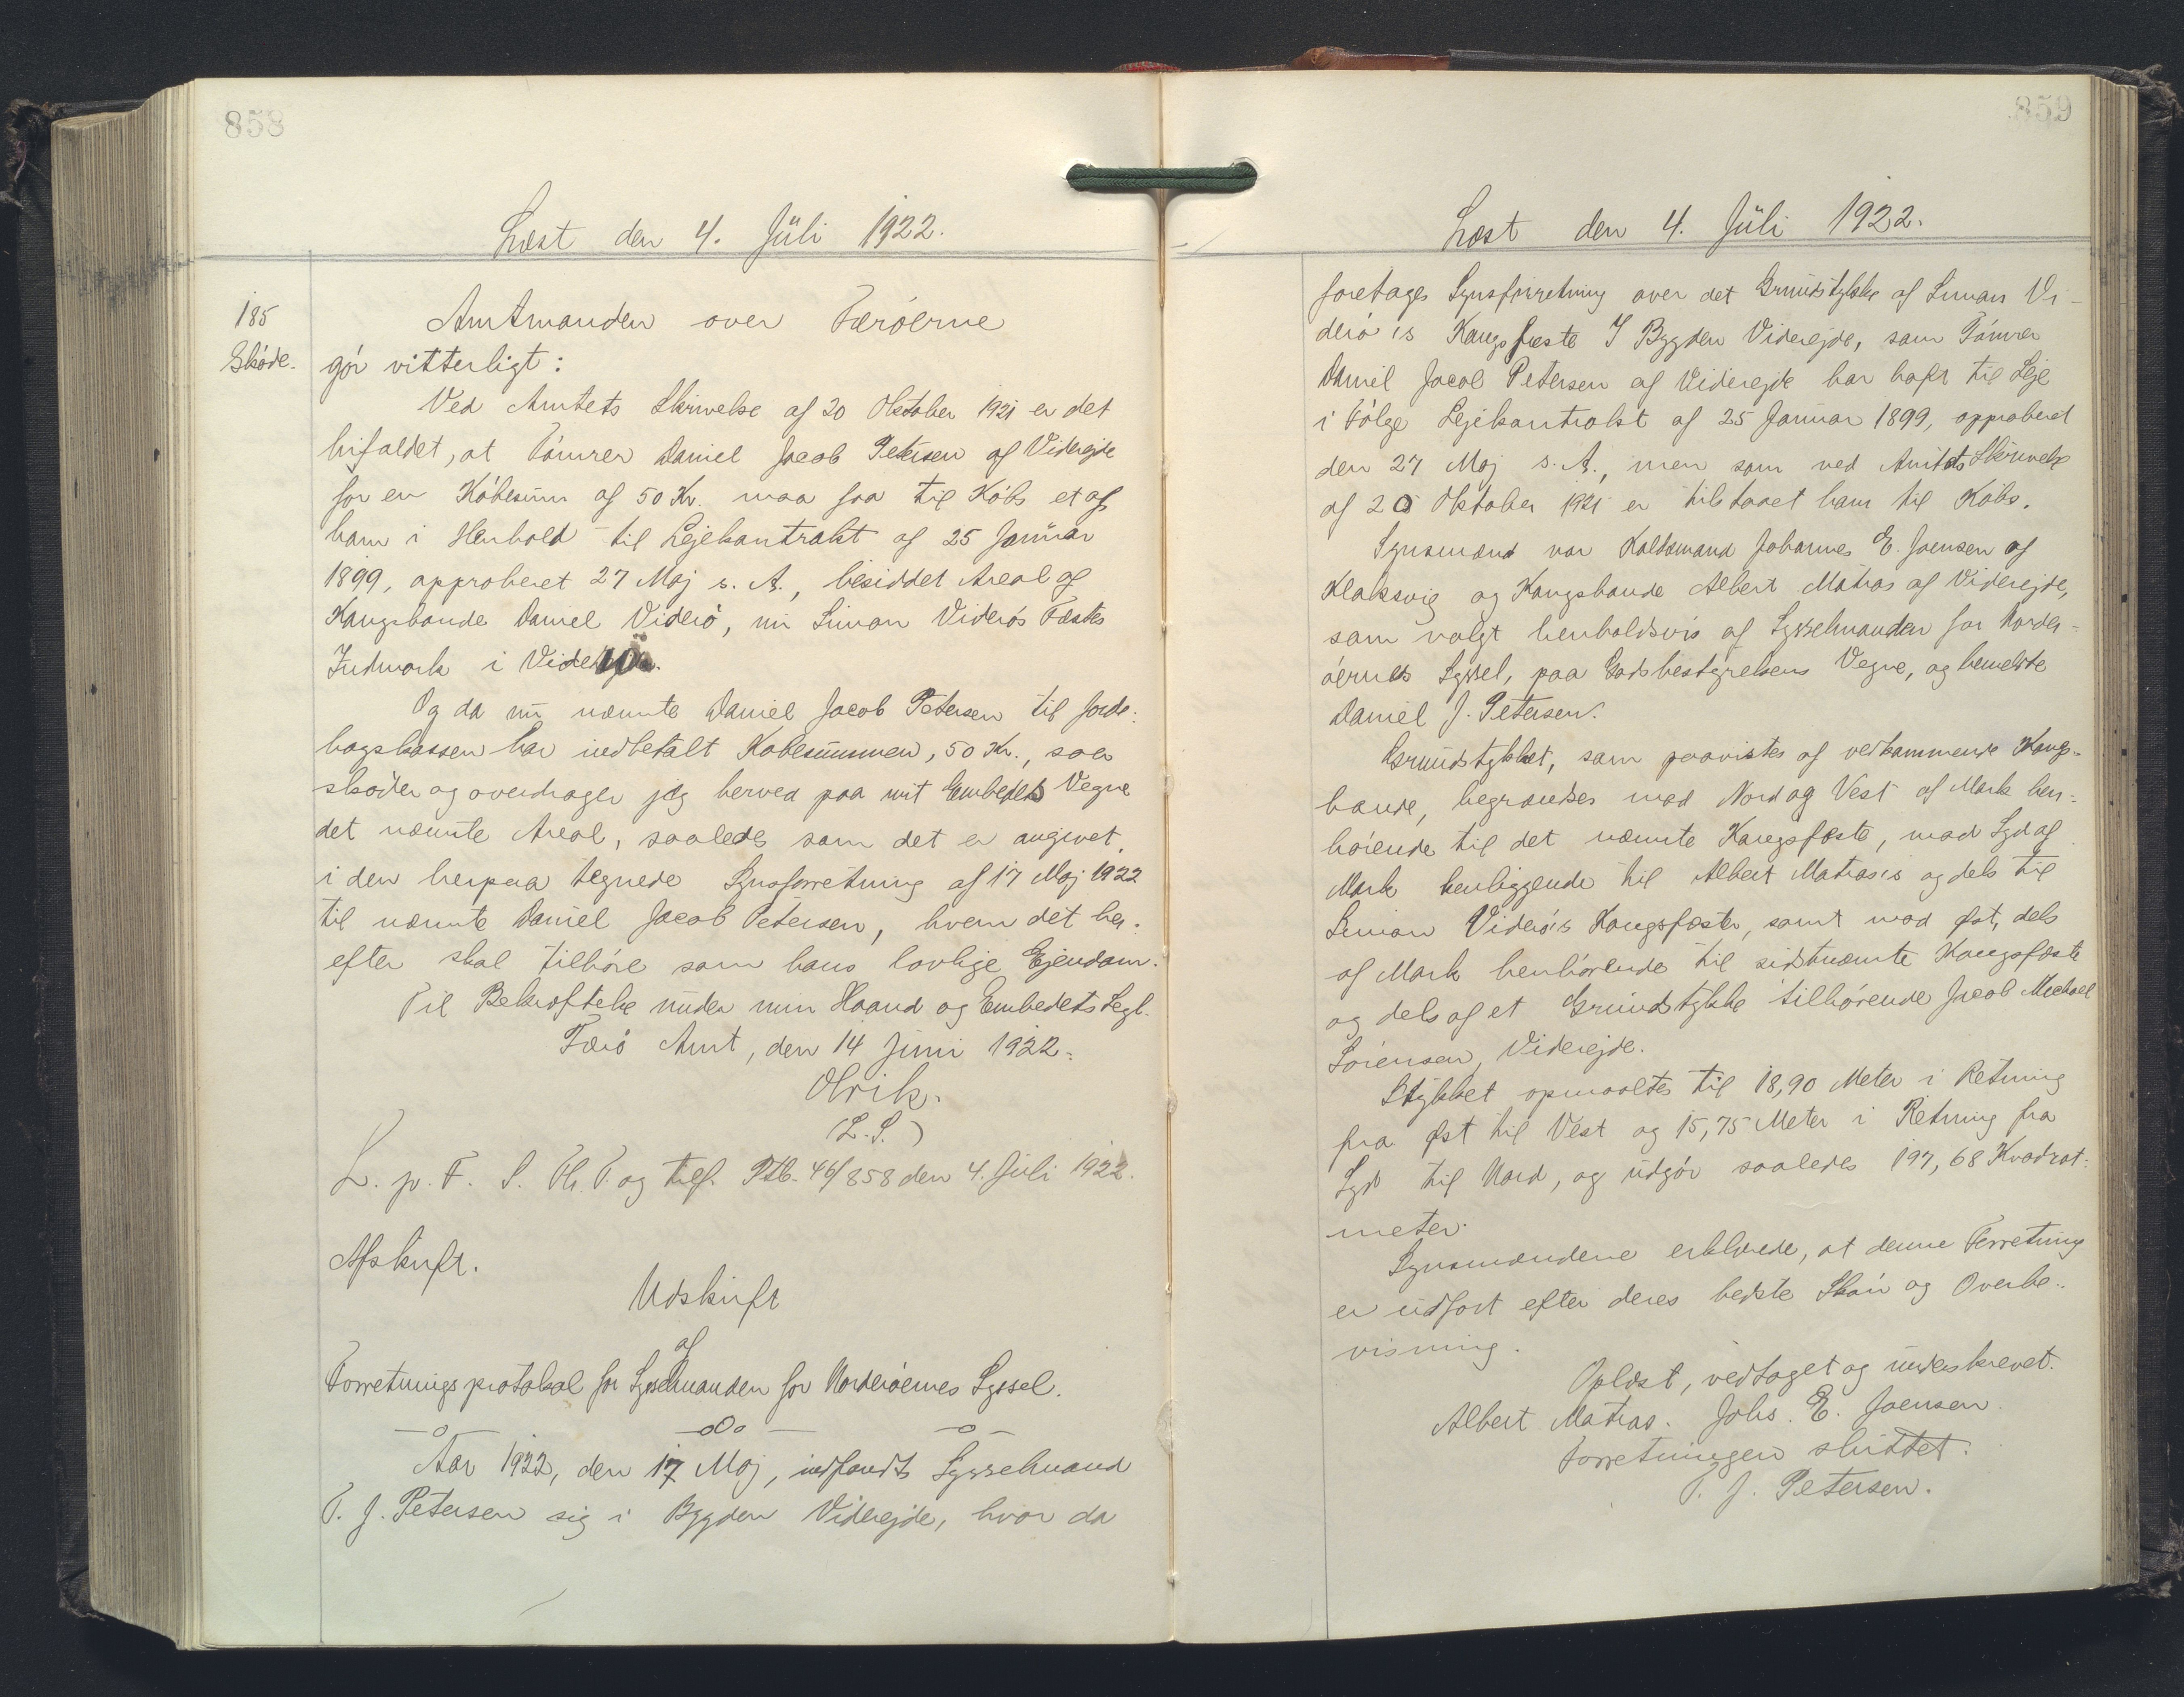 858
Læst den 4. Jüli 1922.
185
Skøde.
Amtmanden over Færöerne
gör vitterligt:
Ved Amtets Skrivelse af 20 Oktober 1921 er det
bifaldet, at Tömrer Daniel Jacob Petersen af Viderejde
for en Köbesum af 50 Kr. maa faa til Köbs et af
ham i Henhold til Lejekontrakt af 25 Januar
1899, approberet 27 Maj s. A., besiddet Areal af
Kongsbonde Daniel Viderö, nu Simon Viderös Fæstes
Indmark i Viderejde.
Og da nu nævnte Daniel Jacob Petersen til Jorde-
bogskassen har indbetalt Köbesummen, 50 Kr., saa
skøder og overdrager jeg herved paa mit Embedets Vegne
det nævnte Areal, saaledes som det er angivet
i den herpaa tegnede Synsforretning af 17 Maj 1922
til nævnte Daniel Jacob Petersen, hvem det her-
efter skal tilhöre som hans lovlige Ejendom.
Til Bekræftelse under min Haand og Embedets Segl.
Færö Amt, den 14 Juni 1922.
Olrik.
(L. S.)
L. p. F. S. Th. T. og tilf. Ptb. 46/858 den 4. Juli 1922.
Afskrift.
Udskrift
af
Forretningsprotokol for Sysselmanden for Norderöernes Syssel.
Aar 1922, den 17 Maj, indfandt Sysselmand
T. J. Petersen sig i Bygden Viderejde, hvor da
859
Læst den 4. Jüli 1922.
foretages Synsforretning over det Grundstykke af Simon Vi-
derö's Kongsfæste I Bygden Viderejde, som Tömrer
Daniel Jacob Petersen af Viderejde har haft til Leje
i Fölge Lejekontrakt af 25 Januar 1899, approberet
den 27 Maj s. A., men som ved Amtets Skrivelse
af 20 Oktober 1921 er tilstaaet ham til Köbs.
Synsmænd var Johannes E. Joensen af
Klaksvig og Kongsbonde Albert Matras af Viderejde,
som valgt henholdsvis af Sysselmanden for Norder-
öernes Syssel, paa Godsbestyrelsens Vegne, og bemeldte
Daniel J. Petersen.
Grundstykket, som paavistes af vedkommende Kongs-
bonde, begrændses mod Nord og Vest af Mark hen-
hörende til det nævnte Kongsfæste, mod Syd af
Mark henliggende til Albert Matras's og dels til
Simon Viderö's Kongsfæster, samt mod Øst, dels
af Mark henhörende til sidstnævnte Kongsfæste
og dels af et Grundstykke tilhörende Jacob Michael
Sörensen, Viderejde.
Stykket opmaaltes til 18,90 Meter i Retning
fra Øst til Vest og 15,75 Meter i Retning fra
Syd til Nord, og udgör saaledes 197,68 Kvadrat-
meter.
Synsmændene erklærede, at denne Forretning
er udfört efter deres bedste Skön og Overbe-
visning.
Oplæst, vedtaget og underskrevet.
Albert Matras. Johs. E. Joensen.
Forretningen sluttet.
T. J. Petersen.